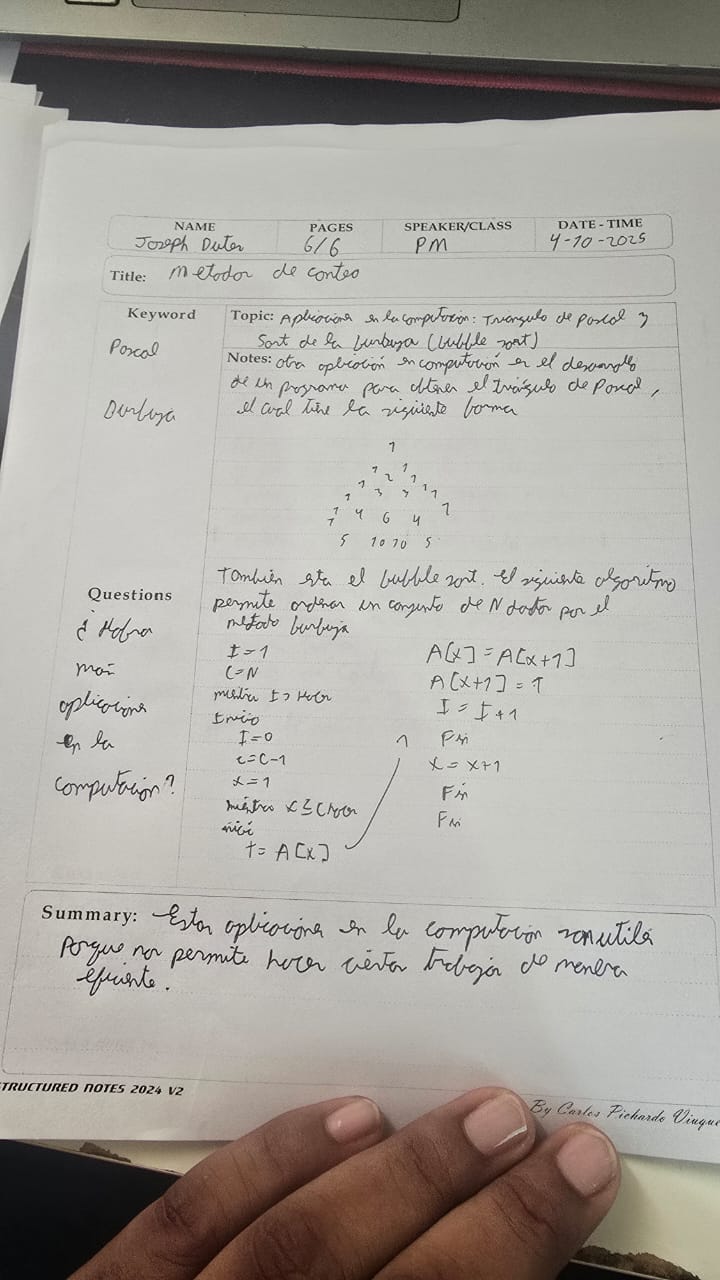 NAME PAGES SPEAKER/CLASS DATE - TIME
Joseph 6/6 PM 4-10-2025
Title: Metodos de conteo
Keyword
Pascal
Burbuja
Topic: Aplicaciones en la computación: Triangulo de Pascal y
Sort de la burbuja (bubble sort)
Notes: Otra aplicación en computación es el desarrollo
de un programa para obtener el triángulo de Pascal,
el cual tiene la siguiente forma
1
1 1
1 2 1
1 3 3 1
1 4 6 4 1
1 5 10 10 5
También esta el bubble sort. El siguiente algoritmo
permite ordenar un conjunto de N datos por el
método burbuja
Questions
¿Habra
mas
aplicaciones
en la
computación?
I=1
C=N
mientras I> Hacer
Inicio
I=0
c=C-1
x=1
mientras x≤C hacer
inicio
t= A[x]
A[x]=A[x+1]
A[x+1]=T
I=I+1
Fin
x=x+1
Fin
Fin
Summary: Estas aplicaciones en la computación son utiles
Porque nos permite hacer ciertos trabajos de manera
eficiente.
STRUCTURED NOTES 2024 V2
By Carlos Pichardo Viuque